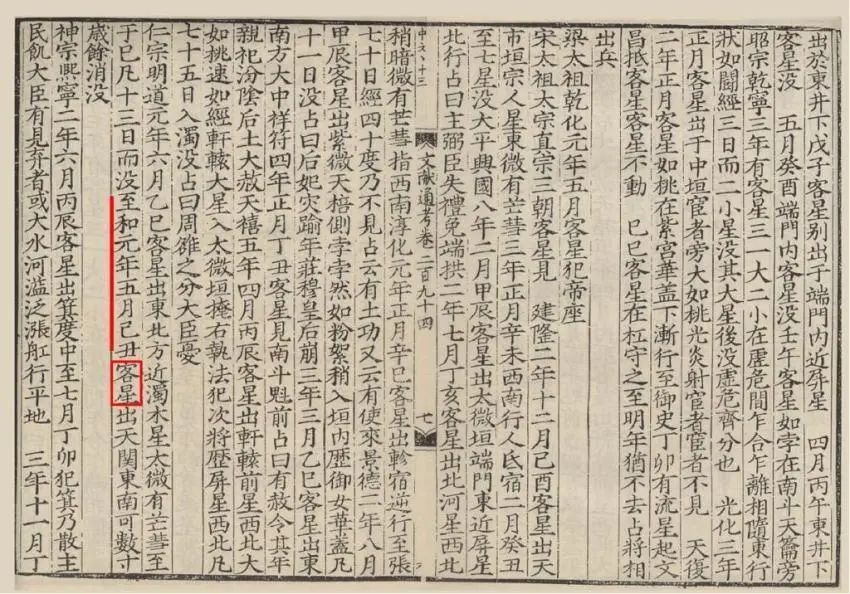 出於東井下戊子客星别出于端門內近屏星　四月丙午東井下
客星没　五月癸酉端門內客星没壬午客星如孛在南斗天籥旁
昭宗乾寧三年有客星三一大二小在虛危間乍合乍離相隨東行
狀如鬭經三日而二小星没其大星後没虛危齊分也　光化三年
正月客星出于中垣宦者旁大如桃光炎射宦者宦者不見　天復
二年正月客星如桃在紫宮華蓋下漸行至御史丁卯有流星起文
昌抵客星客星不動　己巳客星在杠守之至明年猶不去占將相
出兵
梁太祖乾化元年五月客星犯帝座
宋太祖太宗真宗三朝客星見　建隆二年十二月己酉客星出天
市垣宗人星東微有芒彗三年正月辛未西南行入氐宿二月癸丑
至七星没大平興國八年二月甲辰客星出太微垣端門東近屏星
北行占曰主弼臣失禮免端拱二年七月丁亥客星出北河星西北
文献通考卷二百九十四　七
稍暗微有芒彗指西南淳化元年正月辛巳客星出軫宿逆行至張
七十日經四十度乃不見占云有土功又云有使來景德二年八月
甲辰客星出紫微天棓側孛孛然如粉絮稍入垣內歷御女華蓋凡
十一日没占曰后妃灾踰年莊穆皇后崩三年三月乙巳客星出東
南方大中祥符四年正月丁丑客星見南斗魁前占曰有赦令其年
親祀汾陰后土大赦天禧五年四月丙辰客星出軒轅前星西北大
如桃速如經軒轅大星入太微垣掩右執法犯次將歷屏星西北凡
七十五日入濁没占曰周雒之分大臣憂
仁宗明道元年六月乙巳客星出東北方近濁木星太微有芒彗至
于巳凡十三日而没至和元年五月己丑客星出天関東南可數寸
歲餘消没
神宗熙寧二年六月丙辰客星出箕度中至七月丁卯犯箕乃散主
民飢大臣有見弃者或大水河溢泛漲舡行平地　三年十一月丁